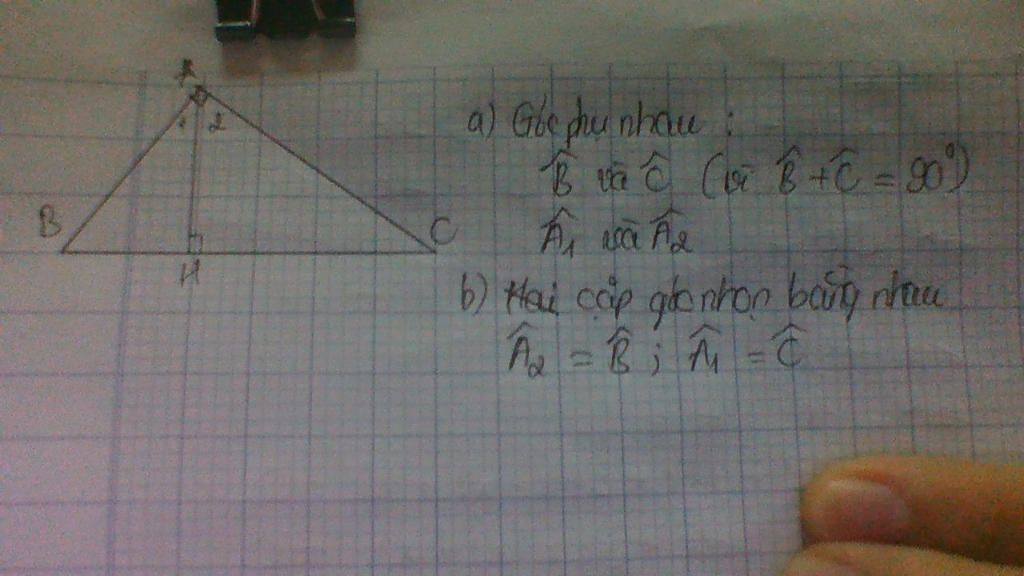 A
1 2
B
C
H
a) Góc phụ nhau :
B̂ và Ĉ (vì B̂ + Ĉ = 90°)
Â₁ và Â₂
b) Hai cặp góc nhọn bằng nhau
Â₂ = B̂ ; Â₁ = Ĉ